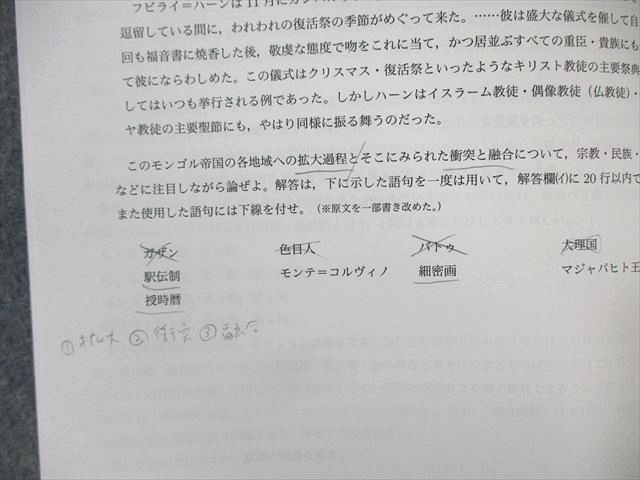 フビライ＝ハーンは 11 月にカンバル
逗留している間に，われわれの復活祭の季節がめぐって来た。……彼は盛大な儀式を催して自
回も福音書に焼香した後，敬虔な態度で吻をこれに当て，かつ居並ぶすべての重臣・貴族にも
て彼にならわしめた。この儀式はクリスマス・復活祭といったようなキリスト教徒の主要祭典
してはいつも挙行される例であった。しかしハーンはイスラーム教徒・偶像教徒（仏教徒）・
ヤ教徒の主要聖節にも，やはり同様に振る舞うのだった。
このモンゴル帝国の各地域への拡大過程とそこにみられた衝突と融合について，宗教・民族・
などに注目しながら論ぜよ。解答は，下に示した語句を一度は用いて，解答欄(ｲ)に 20 行以内で
また使用した語句には下線を付せ。（※原文を一部書き改めた。）
ガザン 色目人 バトゥ 大理国
駅伝制 モンテ＝コルヴィノ 細密画 マジャパヒト王
授時暦
① 拡大 ② 衝突 ③ 融合